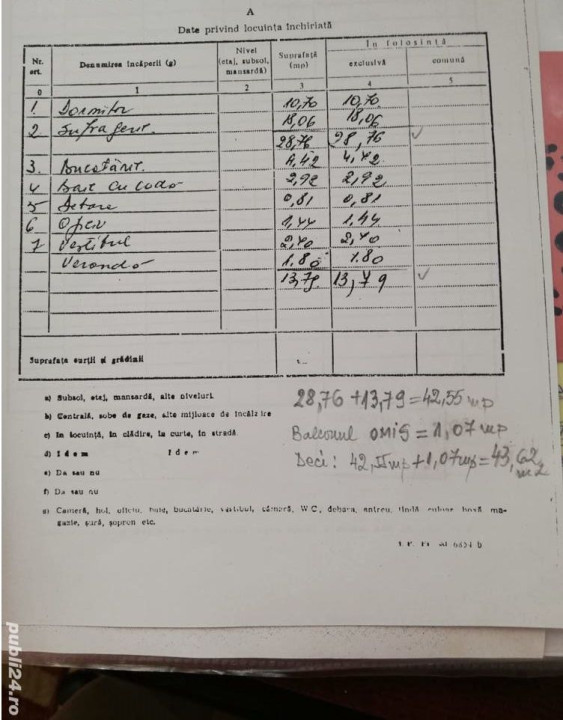 A
Date privind locuința închiriată
Nr. crt. Denumirea încăperii (g) Nivel (etaj, subsol, mansardă) Suprafață (mp) În folosință
exclusivă comună
0 1 2 3 4 5
1. Dormitor 10,70 10,70
2 Sufragerie. 18,06 18,06
28,76 28,76 ✓
3. Bucătărie. 4,42 4,42
4 Baie cu cada 2,92 2,92
5 Debara 0,81 0,81
6 Oficiu 1,44 1,44
7 Vestibul 2,40 2,40
Veranda 1.80 1.80
13,79 13,79 ✓
Suprafața curții și grădinii
a) Subsol, etaj, mansardă, alte niveluri.
b) Centrală, sobe de gaze, alte mijloace de încălzire
c) În locuință, în clădire, în curte, în stradă
d) Idem Idem
e) Da sau nu
f) Da sau nu
g) Cameră, hol, oficiu, baie, bucătărie, vestibul, cămară, W.C., debara, antreu, tindă, boxă, magazie, șură, șopron etc.
28,76 + 13,79 = 42,55 mp
Balconul OMIS = 1,07 mp
Deci: 42,55 mp + 1,07 mp = 43,62 m2
publi24.ro